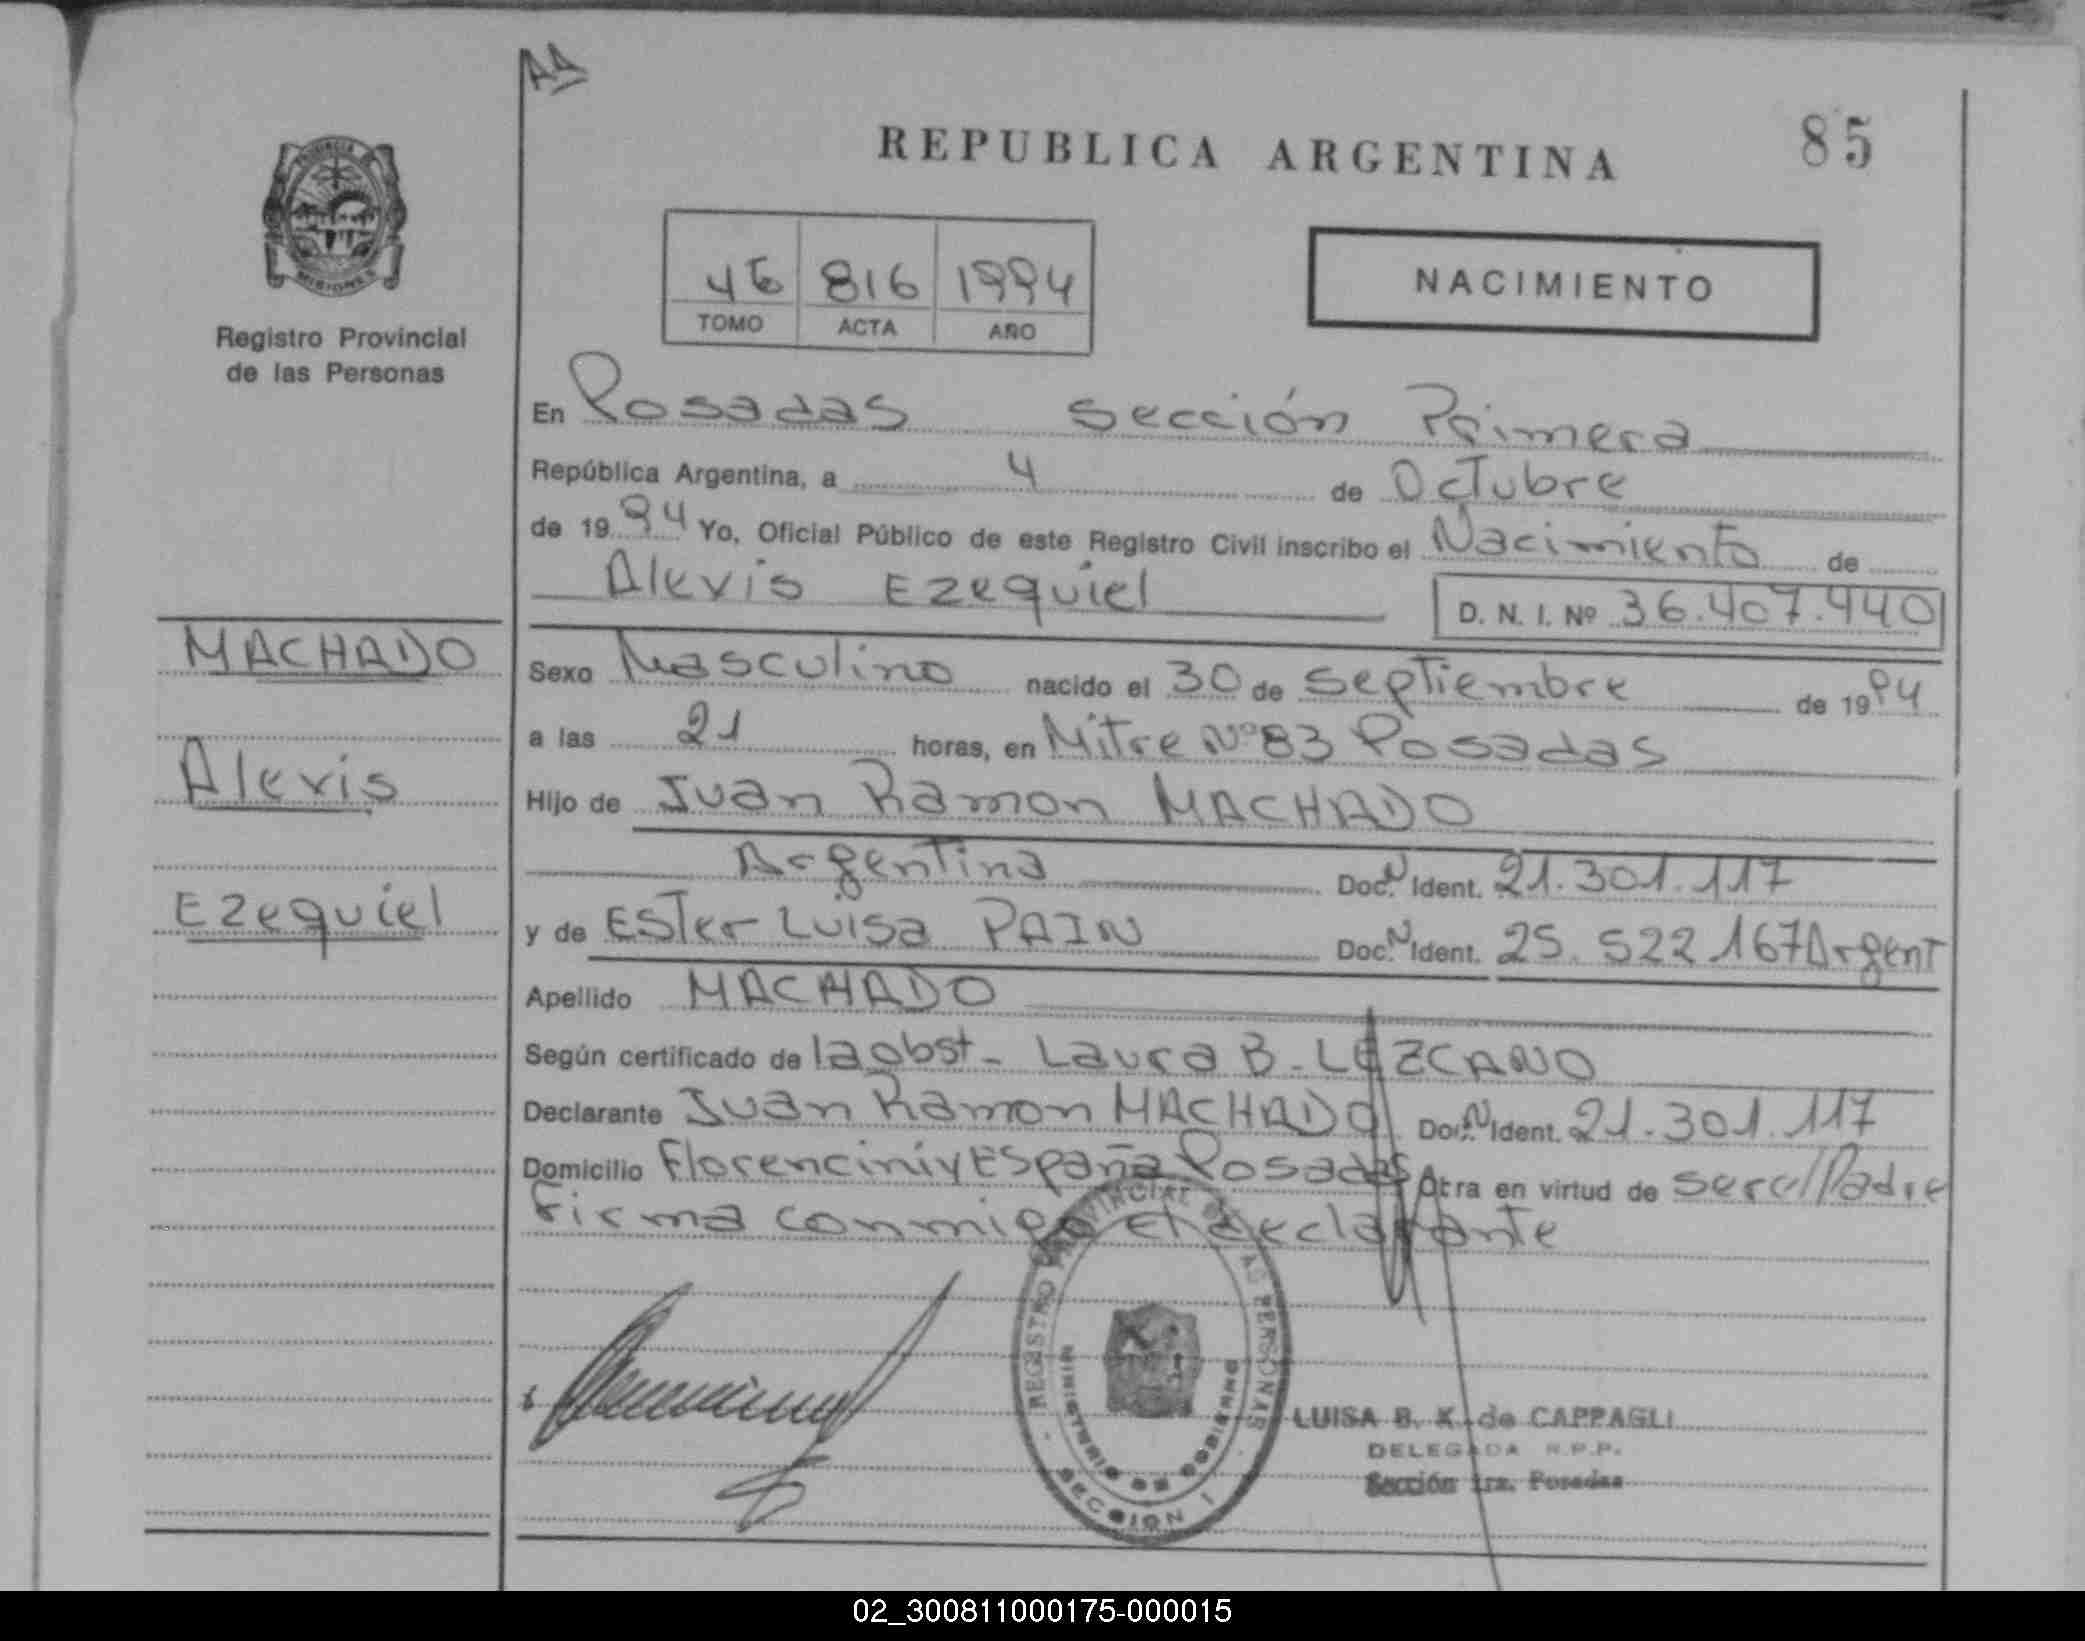 AA
REPUBLICA ARGENTINA
85
PROVINCIA DE
MISIONES
Registro Provincial
de las Personas
816 1994
TOMO ACTA AÑO
NACIMIENTO
En Posadas sección Primera
República Argentina, a 4 de Octubre
de 1994 Yo, Oficial Público de este Registro Civil inscribo el Nacimiento de
Alexis Ezequiel
D. N. I. Nº 36.407.440
MACHADO
Alexis
Ezequiel
Sexo Masculino nacido el 30 de septiembre de 1994
a las 21 horas, en Mitre Nº 83 Posadas
Hijo de Juan Ramon MACHADO
Argentina Doc. N Ident. 21.301.117
y de Ester Luisa PAIN Doc. N Ident. 25.522.167 Argent
Apellido MACHADO
Según certificado de la obst- Laura B- LEZCANO
Declarante Juan Ramon MACHADO Doc. N Ident. 21.301.117
Domicilio Florencini y España Posadas Otra en virtud de ser el Padre
Firma conmigo el declarante
REGISTRO PROVINCIAL DE LAS PERSONAS
MINISTERIO DE GOBIERNO
SECCION 1
LUISA B. K. de CAPPAGLI
DELEGADA R.P.P.
Sección 1ra. Posadas
02_300811000175-000015